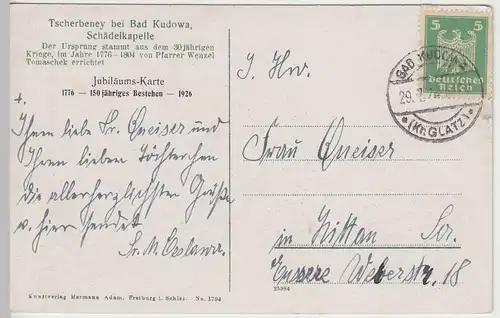 Tscherbeney bei Bad Kudowa,
Schädelkapelle
Der Ursprung stammt aus dem 30 jährigen
Kriege, im Jahre 1776 - 1804 von Pfarrer Wenzel
Tomaschek errichtet
Jubiläums-Karte
1776 — 150 jähriges Bestehen — 1926
Ihnen liebe Fr. Queiser und
Ihren lieben Töchterchen
die allerherzlichsten Grüße
v. hier sendet
Fr. M.
Kunstverlag Hermann Adam, Freiburg i. Schles. No. 1794
5 5
Deutsches
Reich
BAD KUDOWA
29.
(Kr. GLATZ)
I. Hw.
Frau Queiser
in Zittau Sa.
Äussere Weberstr. 18
25984